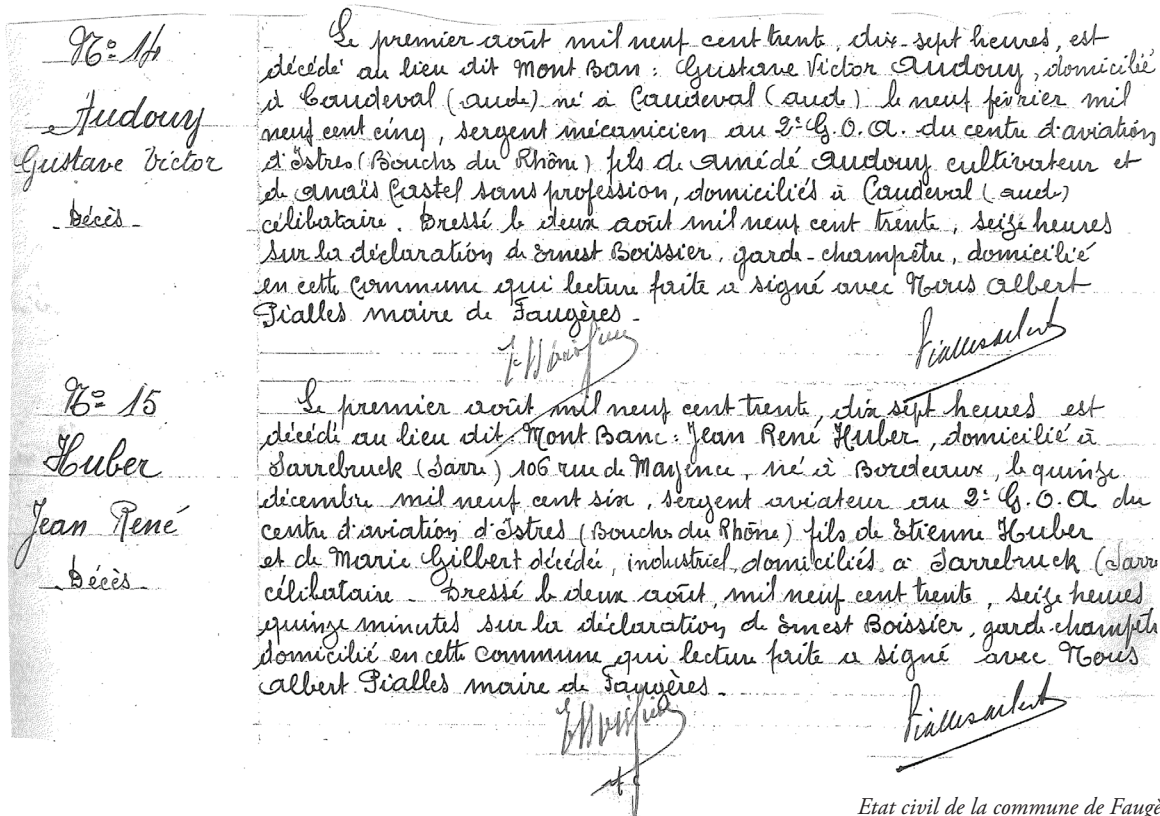 N° 14
Audouy
Gustave Victor
Décès
Le premier août mil neuf cent trente, dix-sept heures, est
décédé au lieu dit Mont Ban : Gustave Victor Audouy, domicilié
à Caudeval (Aude) né à Caudeval (Aud) le neuf février mil
neuf cent cinq, sergent mécanicien au 2e G.O.A. du centre d'aviation
d'Istres (Bouchs du Rhône) fils de Amédé Audouy cultivateur et
de Anaïs Castel sans profession, domiciliés à Caudeval (Aude)
célibataire. Dressé le deux août mil neuf cent trente, seize heures
sur la déclaration de Ernest Boissier, garde-champêtre, domicilié
en cette commune qui lecture faite a signé avec Nous Albert
Pialles maire de Faugères.
Piallesalbert
N° 15
Huber
Jean René
Décès
Le premier août mil neuf cent trente, dix sept heures est
décédé au lieu dit : Mont Banc : Jean René Huber, domicilié à
Sarrebruck (Sarre) 106 rue de Mayence, né à Bordeaux, le quinze
décembre mil neuf cent six, sergent aviateur au 2e G.O.A du
centre d'aviation d'Istres (Bouchs du Rhône) fils de Etienne Huber
et de Marie Gilbert décédée, industriel, domiciliés à Sarrebruck (Sarre
célibataire. Dressé le deux août, mil neuf cent trente, seize heures
quinze minutes sur la déclaration de Ernest Boissier, garde-champêt
domicilié en cette commune qui lecture faite a signé avec Nous
Albert Pialles maire de Faugères.
Piallesalbert
Etat civil de la commune de Faugè